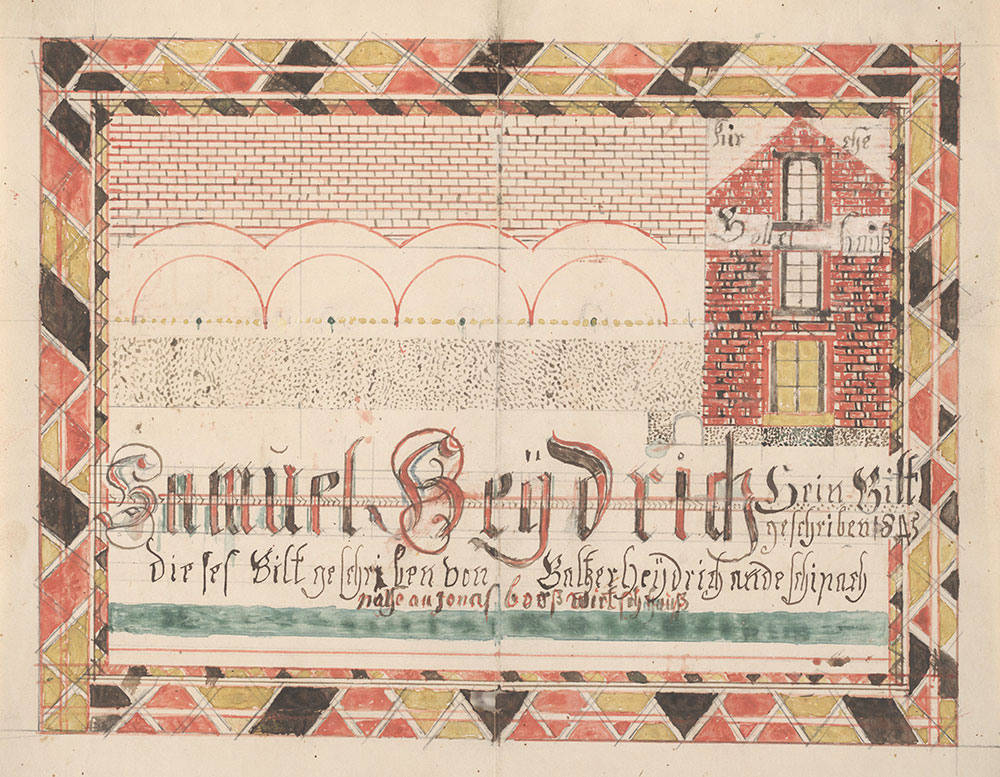 für ehe
Samuel Heÿdrich Sein Bilt
geschriben 1845
dieses Bilt geschriben von Baltzer heÿdrich an de schipach
nahe an Jonas boos wirtschauß